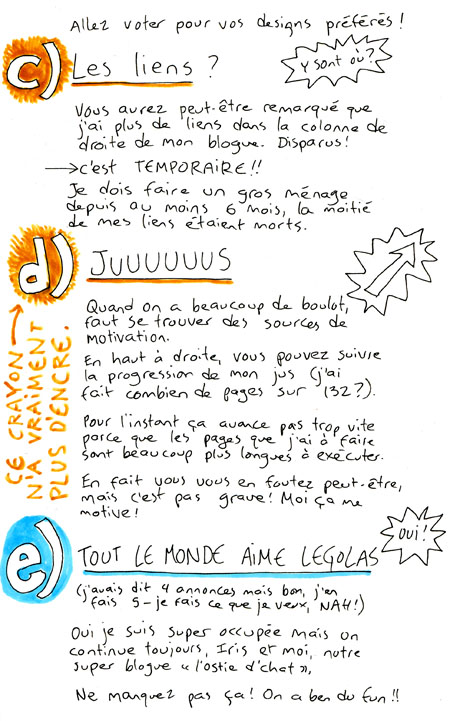 Allez voter pour vos designs préférés !
c) Les liens ?
Y sont où?
Vous aurez peut-être remarqué que
j'ai plus de liens dans la colonne de
droite de mon blogue. Disparus!
→c'est TEMPORAIRE!!
Je dois faire un gros ménage
depuis au moins 6 mois, la moitié
de mes liens étaient morts.
d) JUUUUUUS
Quand on a beaucoup de boulot,
faut se trouver des sources de
motivation.
En haut à droite, vous pouvez suivre
la progression de mon jus (j'ai
fait combien de pages sur 132?).
Pour l'instant ça avance pas trop vite
parce que les pages que j'ai à faire
sont beaucoup plus longues à exécuter.
En fait vous vous en foutez peut-être,
mais c'est pas grave! Moi ça me
motive!
ÇE CRAYON →
N'A VRAIMENT
PLUS D'ENCRE.
e) TOUT LE MONDE AIME LEGOLAS
OUI!
(j'avais dit 4 annonces mais bon, j'en
fais 5 - je fais ce que je veux, NAH!)
Oui je suis super occupée mais on
continue toujours, Iris et moi, notre
super blogue « l'ostie d'chat »,
Ne manquez pas ça! On a ben du fun!!